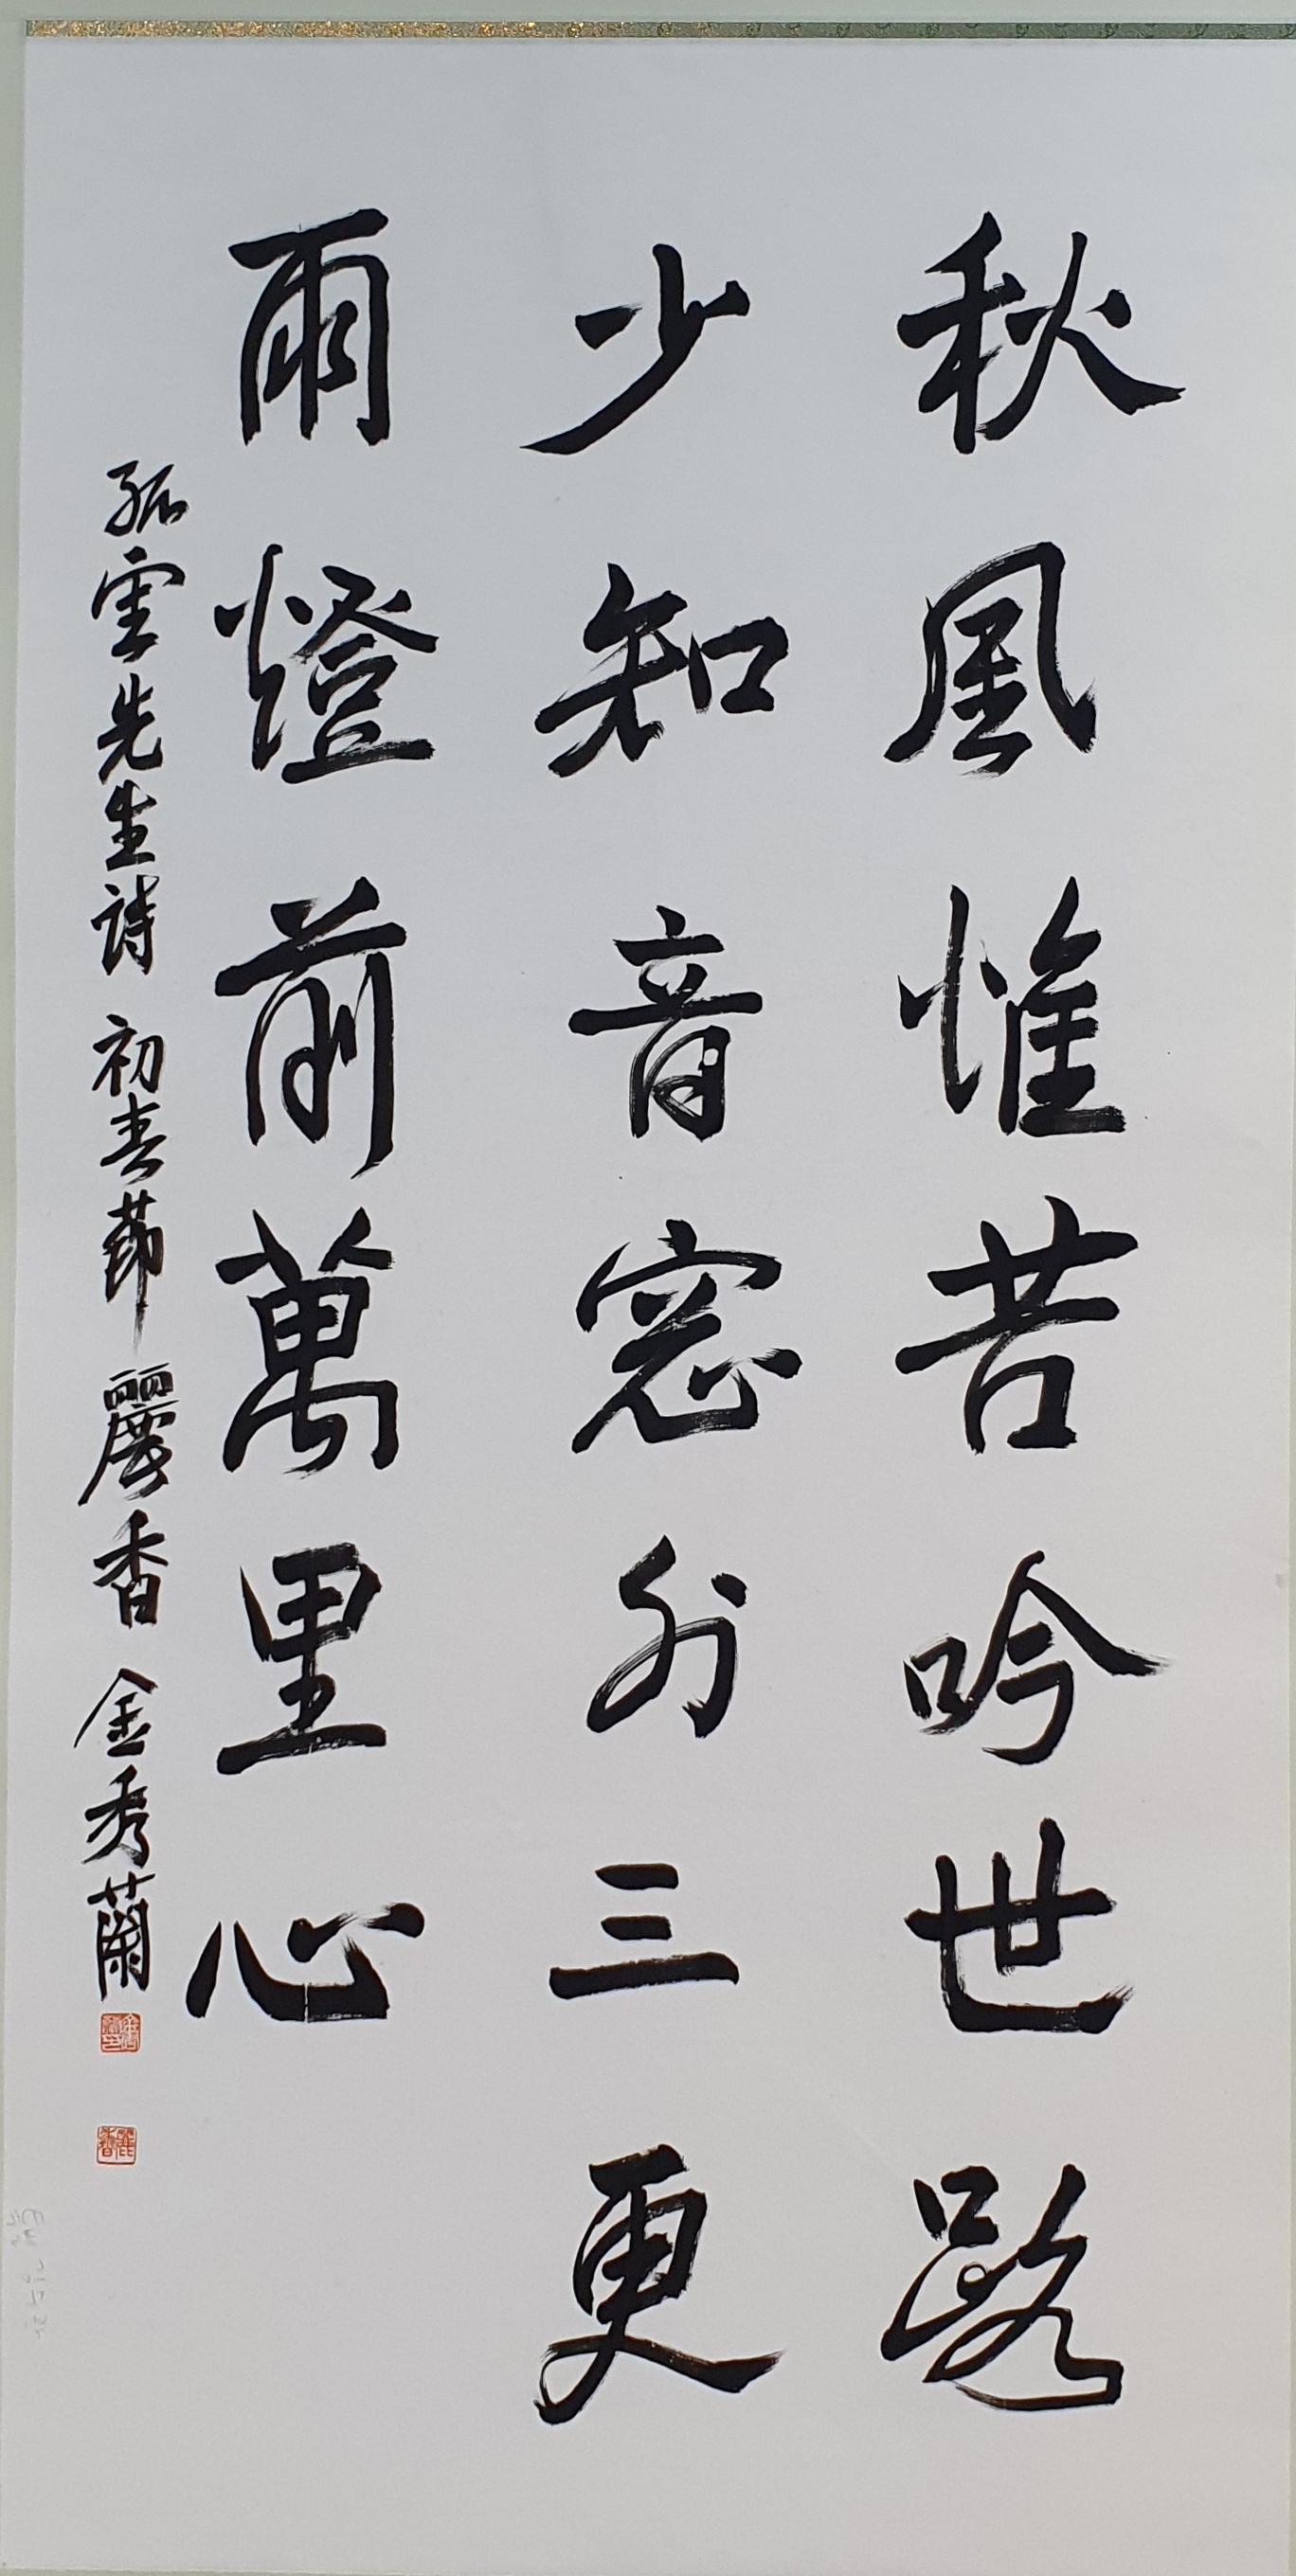 秋風惟苦吟世路
少知音窓外三更
雨燈前萬里心
孤雲先生詩 初春節 麗香 金秀蘭